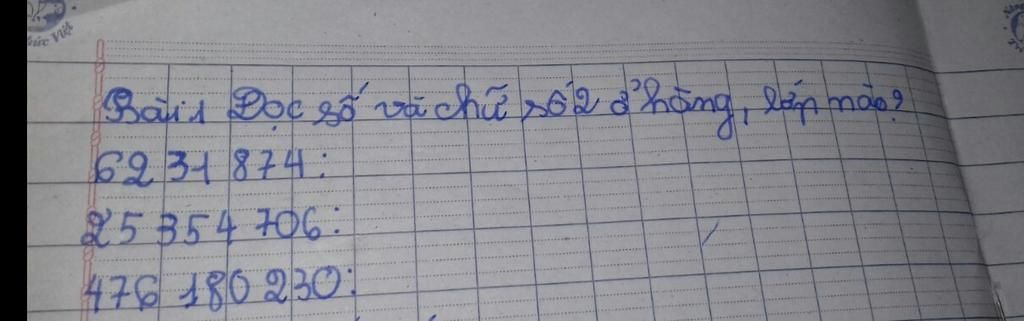 ức Việt
Bài 1 Đọc số và chữ số 2 ở hàng, lớp nào?
6231 874:
25 354 706:
476 180 230: